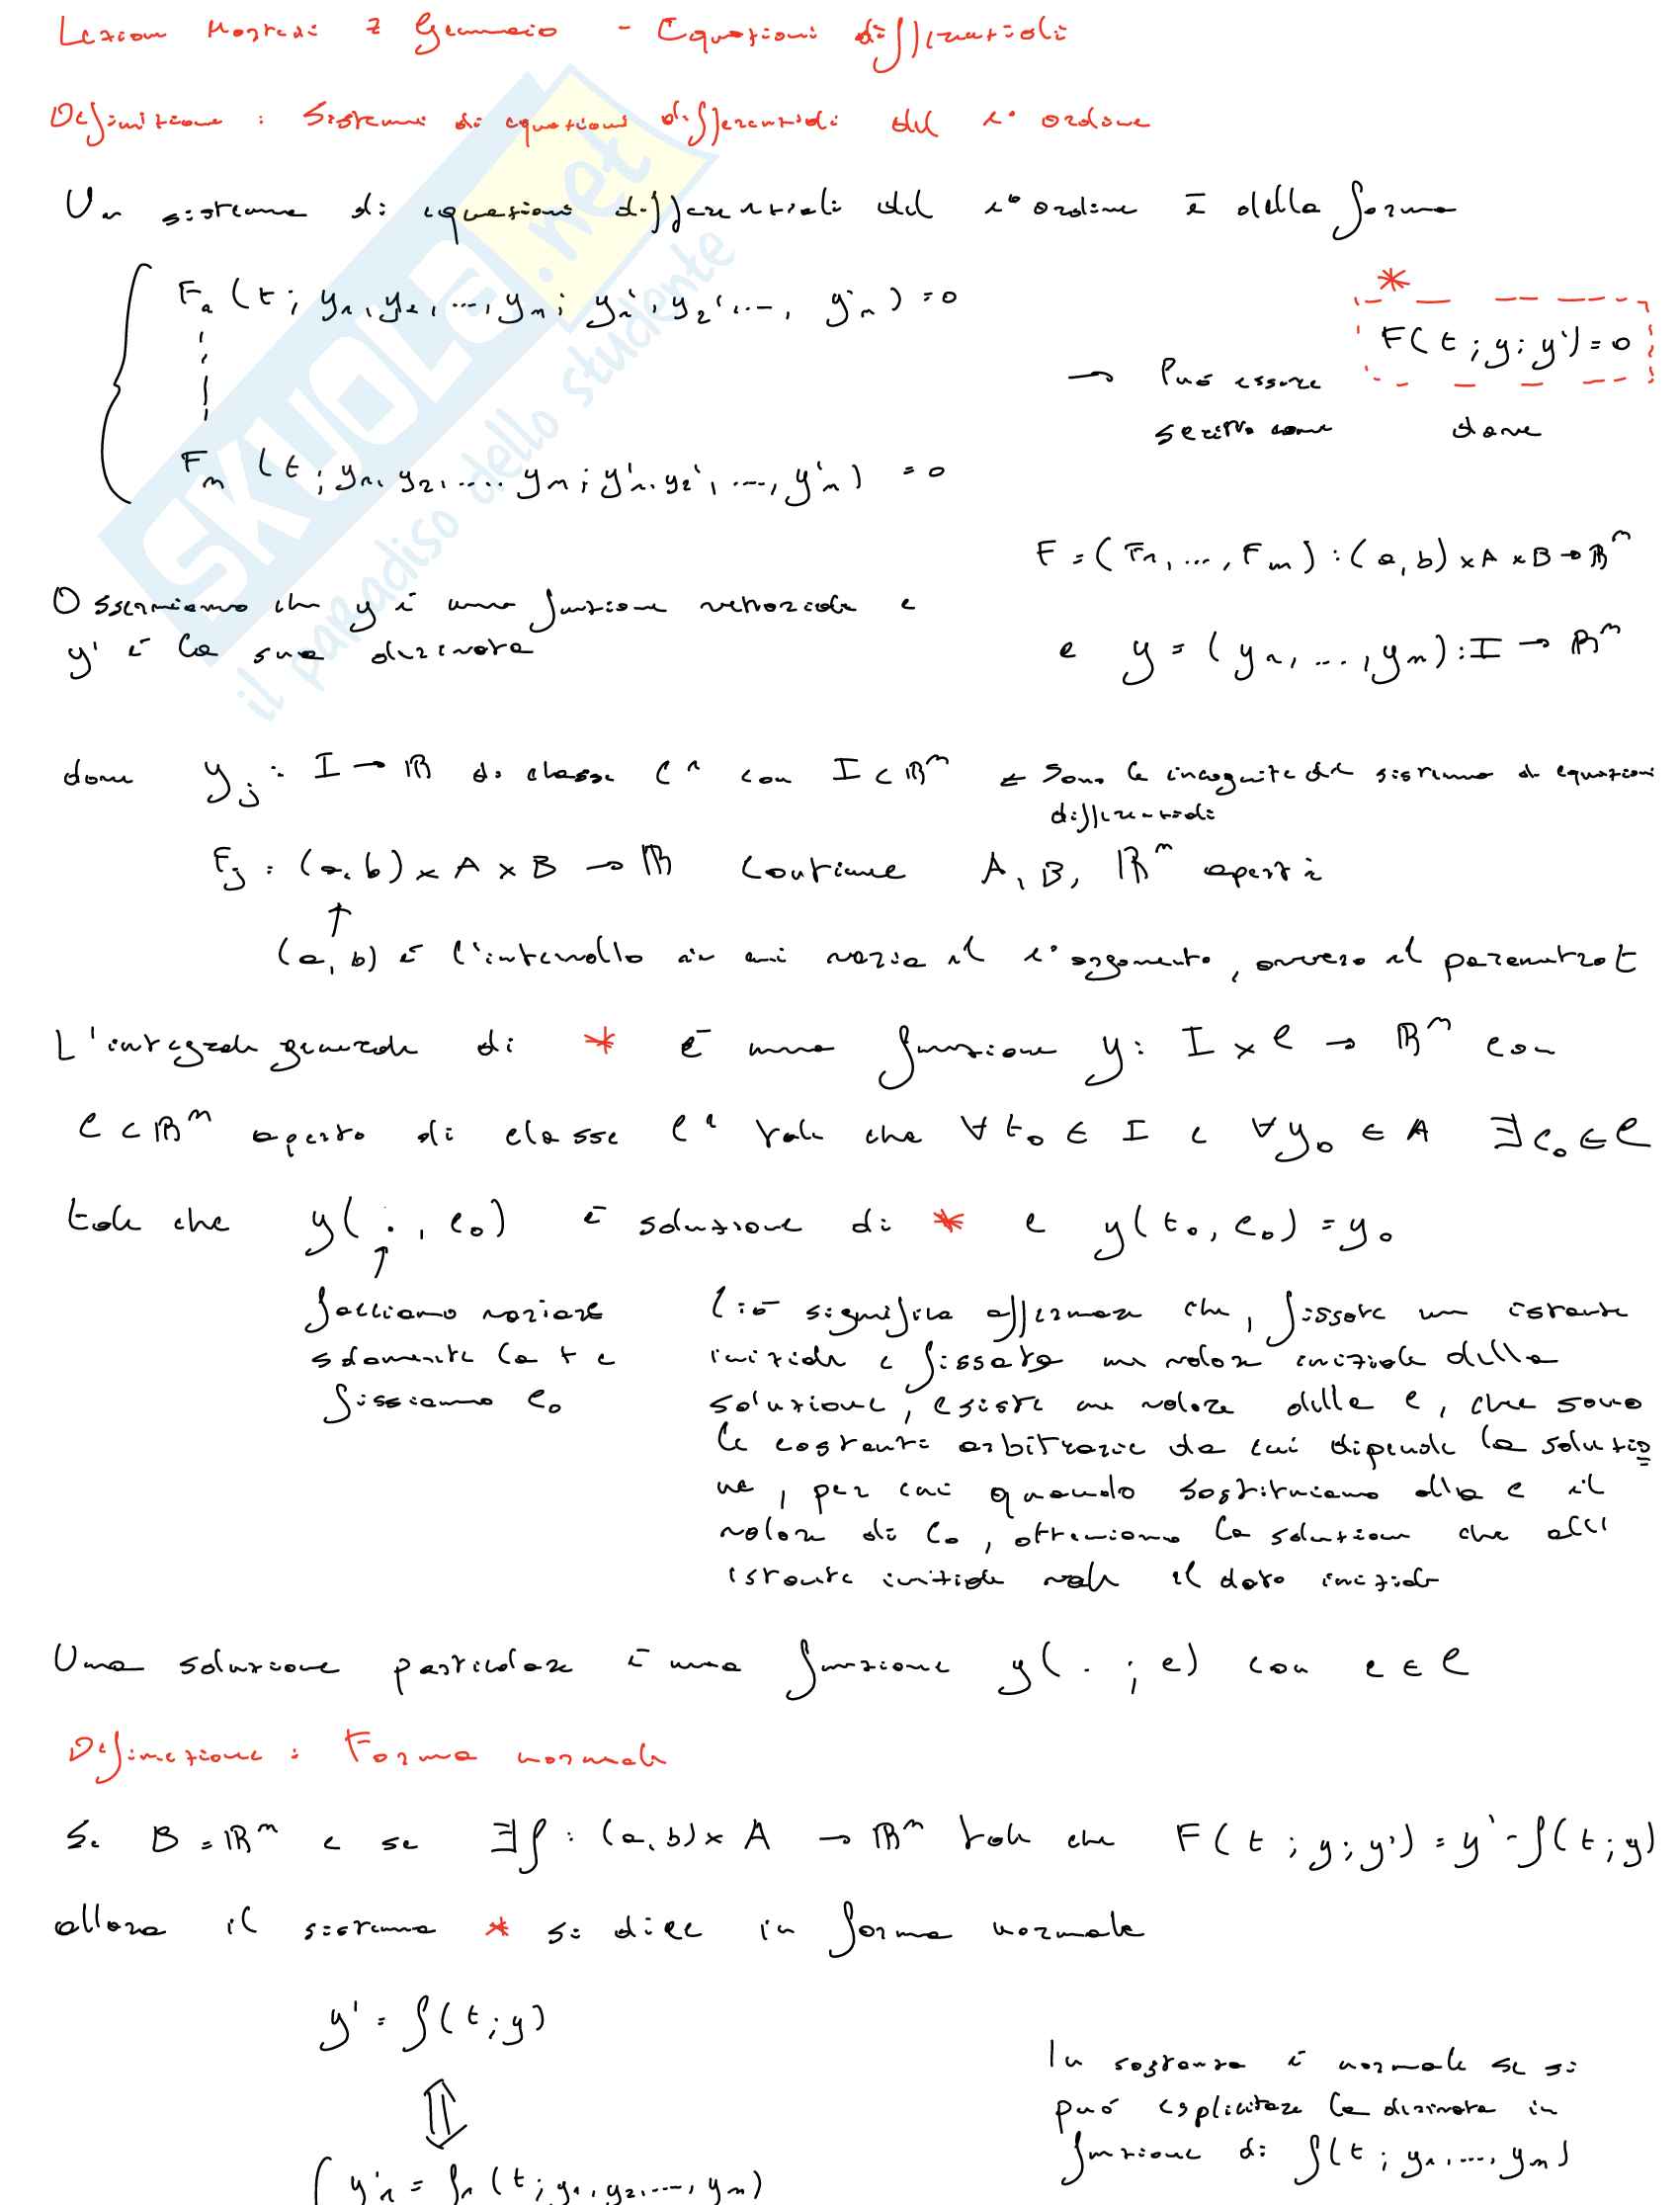 Lezione Martedì 7 Gennaio - Equazioni differenziali
Definizione : Sistemi di equazioni differenziali del 1° ordine
Un sistema di equazioni differenziali del 1° ordine è della forma
F₁ (t ; y₁, y₂, ..., yₙ ; y₁', y₂', ..., y'ₙ) = 0
*
F(t ; y ; y') = 0
→ Può essere
scritto come dove
Fₙ (t ; y₁, y₂, .... yₙ ; y'₁, y₂', ..., y'ₙ) = 0
F = (F₁, ..., Fₙ) : (a, b) × A × B → ℝⁿ
Osserviamo che y è una funzione vettoriale e
y' è la sua derivata
e y = (y₁, ..., yₙ) : I → ℝⁿ
dove yⱼ : I → ℝ di classe C¹ con I ⊂ ℝⁿ ← Sono le incognite del sistema di equazioni
differenziali
Fⱼ : (a, b) × A × B → ℝ continue A, B, ℝⁿ aperti
↑
(a, b) è l'intervallo in cui varia il 1° argomento, ovvero il parametro t
L'integrale generale di * è una funzione y : I × C → ℝⁿ con
C ⊂ ℝⁿ aperto di classe C¹ tale che ∀ t₀ ∈ I e ∀ y₀ ∈ A ∃ c₀ ∈ C
tale che y( · , c₀) è soluzione di * e y(t₀, c₀) = y₀
↑
facciamo variare
solamente la t e
fissiamo c₀
Ciò significa affermare che, fissato un istante
iniziale e fissato un valore iniziale della
soluzione, esiste un valore della c, che sono
le costanti arbitrarie da cui dipende la soluzio
ne, per cui quando sostituiamo alla c il
valore di c₀, otteniamo la soluzione che all'
istante iniziale vale il dato iniziale
Una soluzione particolare è una funzione y( · ; c) con c ∈ C
Definizione : Forma normale
Se B = ℝⁿ e se ∃ f : (a, b) × A → ℝⁿ tale che F(t ; y ; y') = y' - f(t ; y)
allora il sistema * si dice in forma normale
y' = f(t ; y)
⇕
y'₁ = f₁ (t ; y₁, y₂, ..., yₙ)
In sostanza è normale se si
può esplicitare la derivata in
funzione di f(t ; y₁, ..., yₙ)
SKUOLA.net
il paradiso dello studente